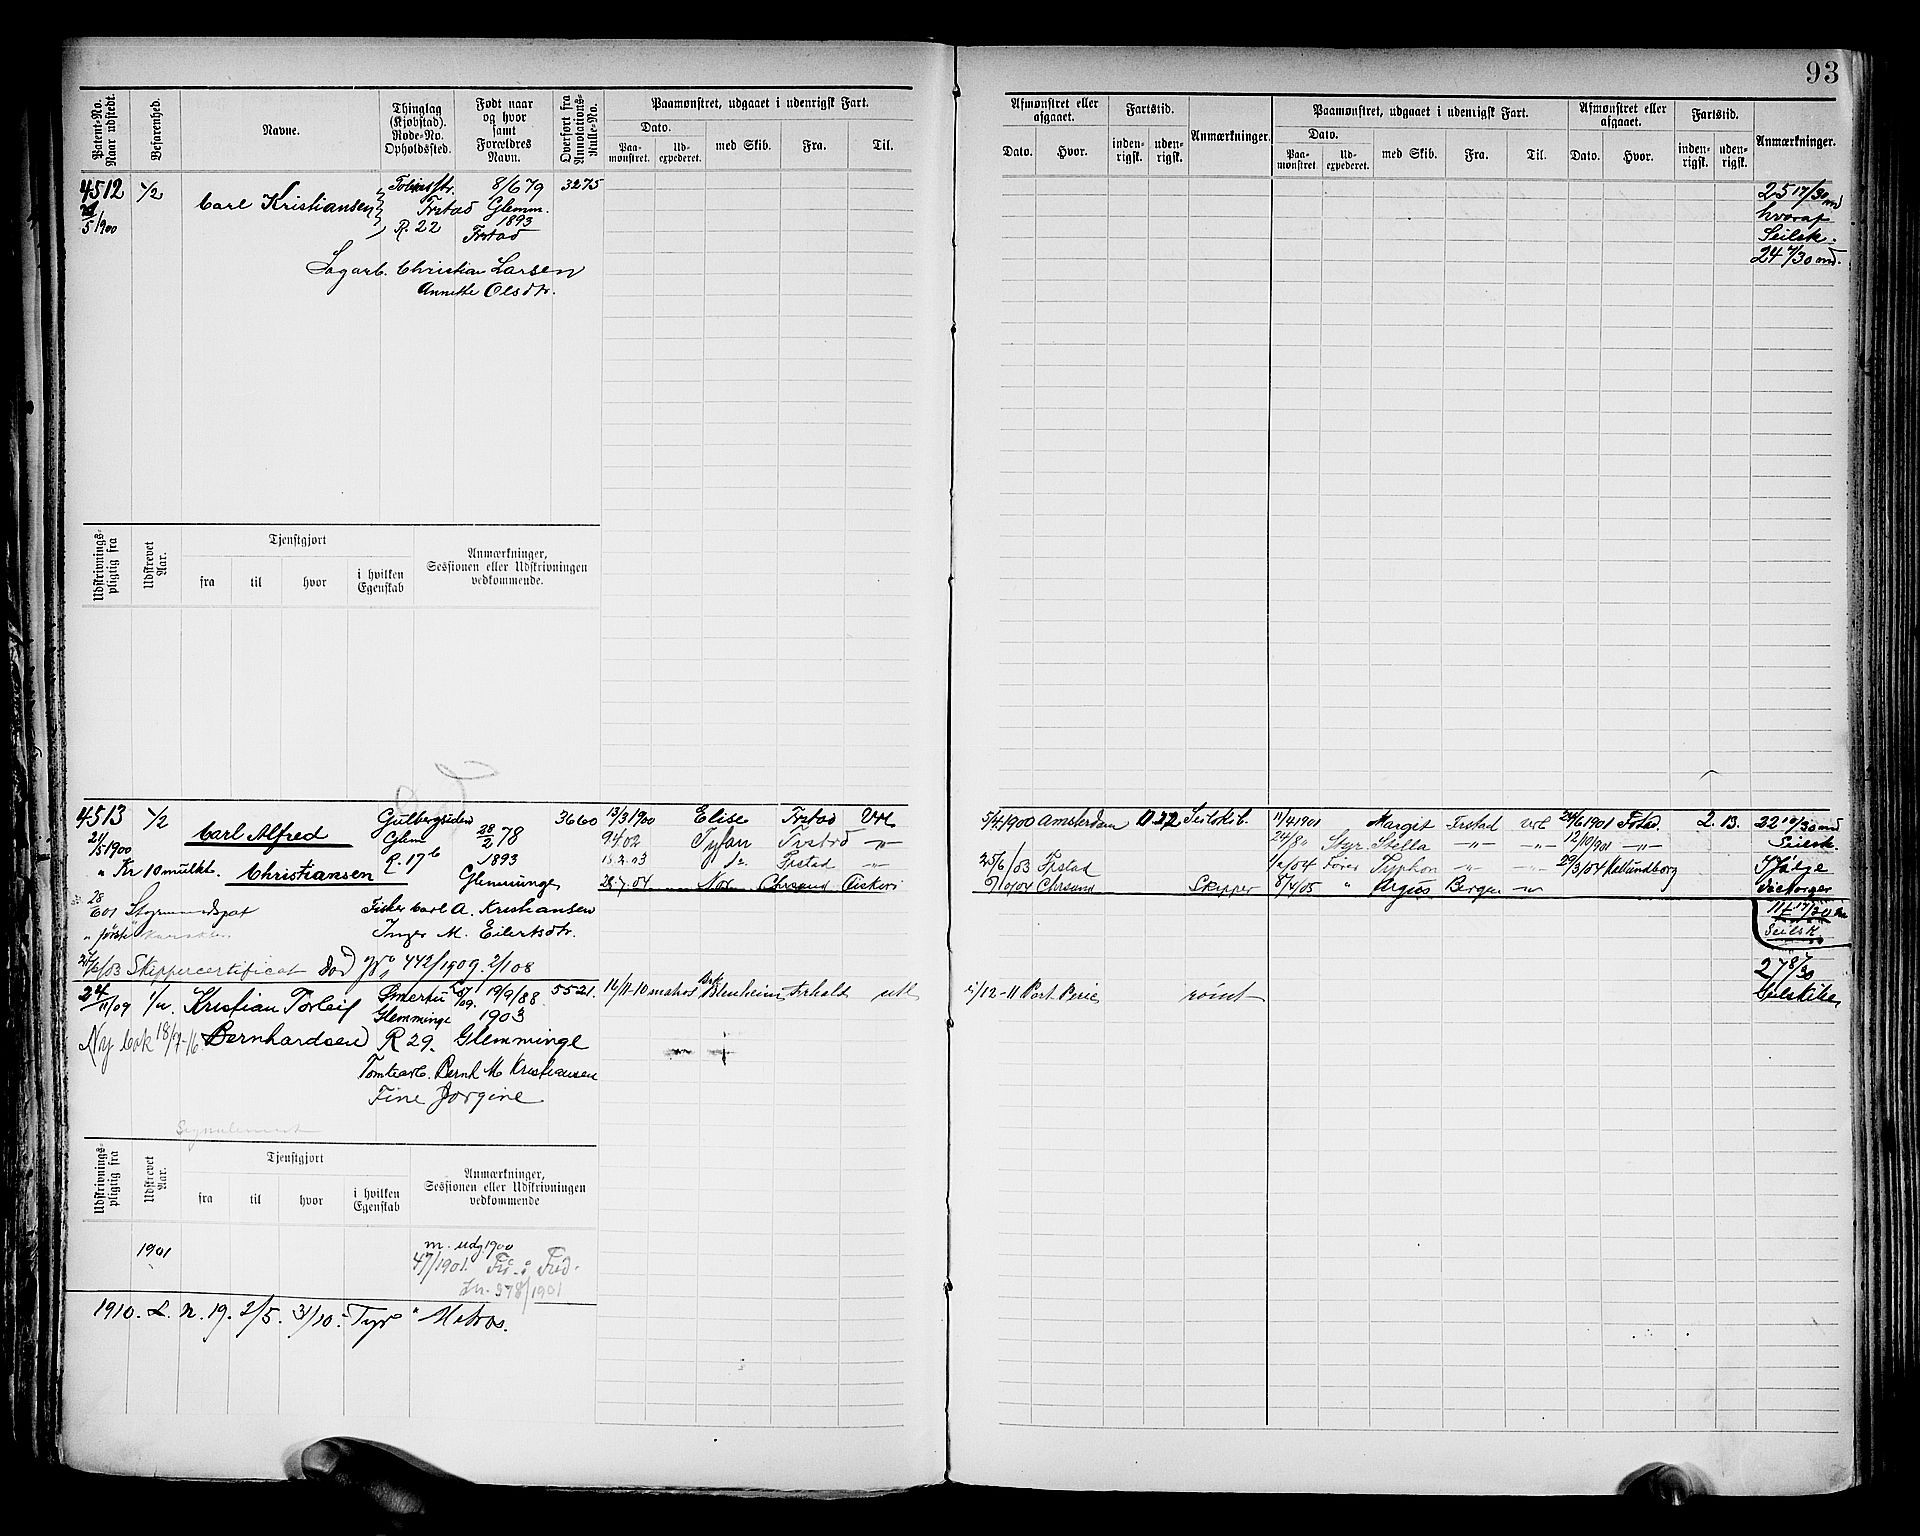 93
Patent-No.
Naar udstedt.
Befarenhed.
Navne.
Thinglag
(Kjøbstad).
Rode-No.
Opholdssted.
Født naar
og hvor
samt
Forældres
Navn.
Overført fra
Annotations-
Rulle-No.
Paamønstret, udgaaet i udenrigsk Fart.
Dato.
Paa-
mønstret.
Ud-
expederet.
med Skib.
Fra.
Til.
Afmønstret eller
afgaaet.
Dato.
Hvor.
Fartstid.
inden-
rigsk.
uden-
rigsk.
Anmærkninger.
Paamønstret, udgaaet i udenrigsk Fart.
Dato.
Paa-
mønstret.
Ud-
expederet.
med Skib.
Fra.
Til.
Afmønstret eller
afgaaet.
Dato.
Hvor.
Fartstid.
inden-
rigsk.
uden-
rigsk.
Anmærkninger.
4512 1/2 Tobiasstr. 8/6 79 3275
Carl Kristiansen Frstad Glemm.
5/1900 R. 22 1893
Frstad
Sagarb. Christian Larsen
Annette Olsdtr.
25 17/30 md
hvoraf
Seilsk.
24 4/30 md.
Udskrivnings-
pligtig fra
Udskrevet
Aar.
Tjenstgjort
fra
til
hvor
i hvilken
Egenskab
Anmærkninger,
Sessionen eller Udskrivningen
vedkommende.
4513 1/2 Carl Alfred Gulbergsiden 28/2 78 3660 13/3 1900 Elise Frstad Utl
21/5 1900 Glem 1893 9/4 02 Tyfon Frstad -"-
" Kr 10 mulkt. Christiansen R. 17b Glemminge 03 Frstad -"-
28/7.04 Nor Chrsand Fiskeri
5/4 1900 Amsterdam 0.22 Seilskib. 11/4 1901 Margit Frstad utl 24/6 1901 Fstad. 2.13. 22 19/30 md
24/8 Styr. Stella -"- -"- 12/10 901 -"- Seilsk.
25/6/03 Frstad 04 Fører Typhon -"- -"- 29/3/04 Kallundborg
04 Chrsand Skipper 8/4/05 " Argus Bergen -"-
28/6 01 Styrmandspat Fisker Carl A. Kristiansen
" Inger M. Eilertsdtr.
/6/03 Skippercertificat Død Jr. 442/1909. 2/1 08
Seilsk
27 8/30
Seilskibe
24/11/09 1/u. Kristian Torleif Smertu 19/9/88 5521. 14/11-10 matros Blenheim Frhald utl
Glemminge 1903
Ny bok 18/7-16 Bernhardsen R 29. Glemminge
Tomtearb. Bernh M Kristiansen
Fine Jørgine
/12-11 Port Perie rømt
Signalement
Udskrivnings-
pligtig fra
Udskrevet
Aar.
Tjenstgjort
fra
til
hvor
i hvilken
Egenskab
Anmærkninger,
Sessionen eller Udskrivningen
vedkommende
1901 m. udg. 1900
47/1901. Fri i Fred.
Jn. 978/1901
1910. L. n. 19. 2/5. 31/10. Tyr " Matros.